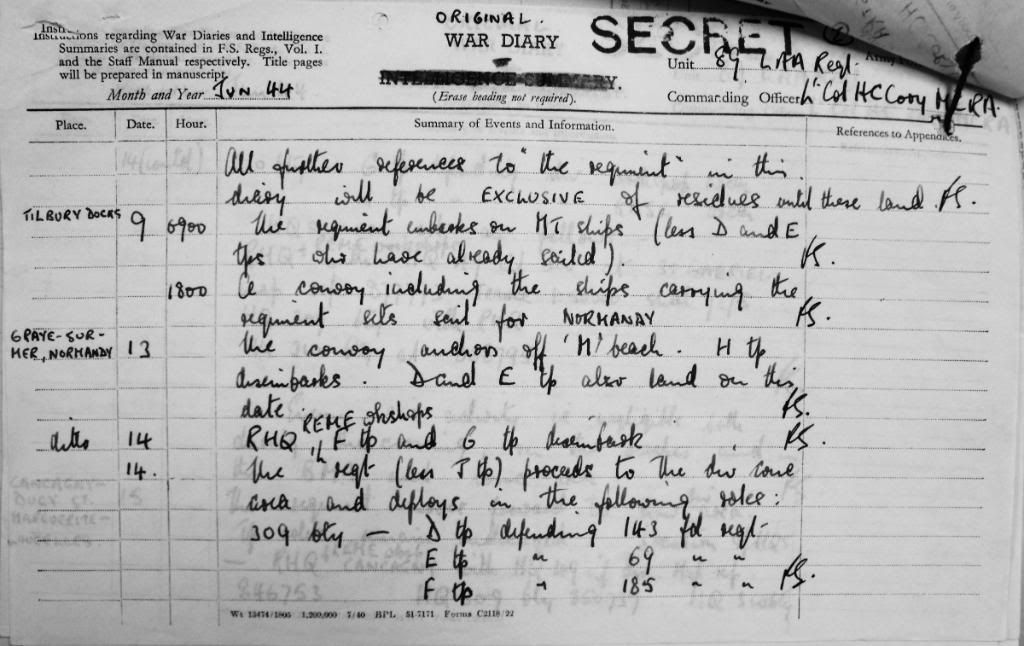 Instructions regarding War Diaries and Intelligence
Summaries are contained in F.S. Regs., Vol. I.
and the Staff Manual respectively. Title pages
will be prepared in manuscript.
Month and Year JUN 44
ORIGINAL.
WAR DIARY
or
INTELLIGENCE SUMMARY.
(Erase heading not required).
SECRET
Unit 89 LAA Regt.
Commanding Officer Lt Col HC Cory MC RA.
Place. Date. Hour. Summary of Events and Information. References to Appendices.
All further references to "the regiment" in this
diary will be EXCLUSIVE of residues until these land.
TILBURY DOCKS 9 0900 The regiment embarks on MT ships (less D and E
tps who have already sailed)
1800 A convoy including the ships carrying the
regiment sets sail for NORMANDY
GRAYE-SUR-
MER, NORMANDY 13 The convoy anchors off 'M' beach. H tp
disembarks. D and E tp also land on this
date
REME wkshops
ditto 14 RHQ, F tp and G tp disembark
14. The regt (less I tp) proceeds to the div conc
area and deploys in the following roles:
309 bty — D tp defending 143 fd regt
E tp " 69 " "
F tp " 185 " "
Wt 13474/1805 1,200,000 7/40 BPL 51-7171 Forms C2118/22